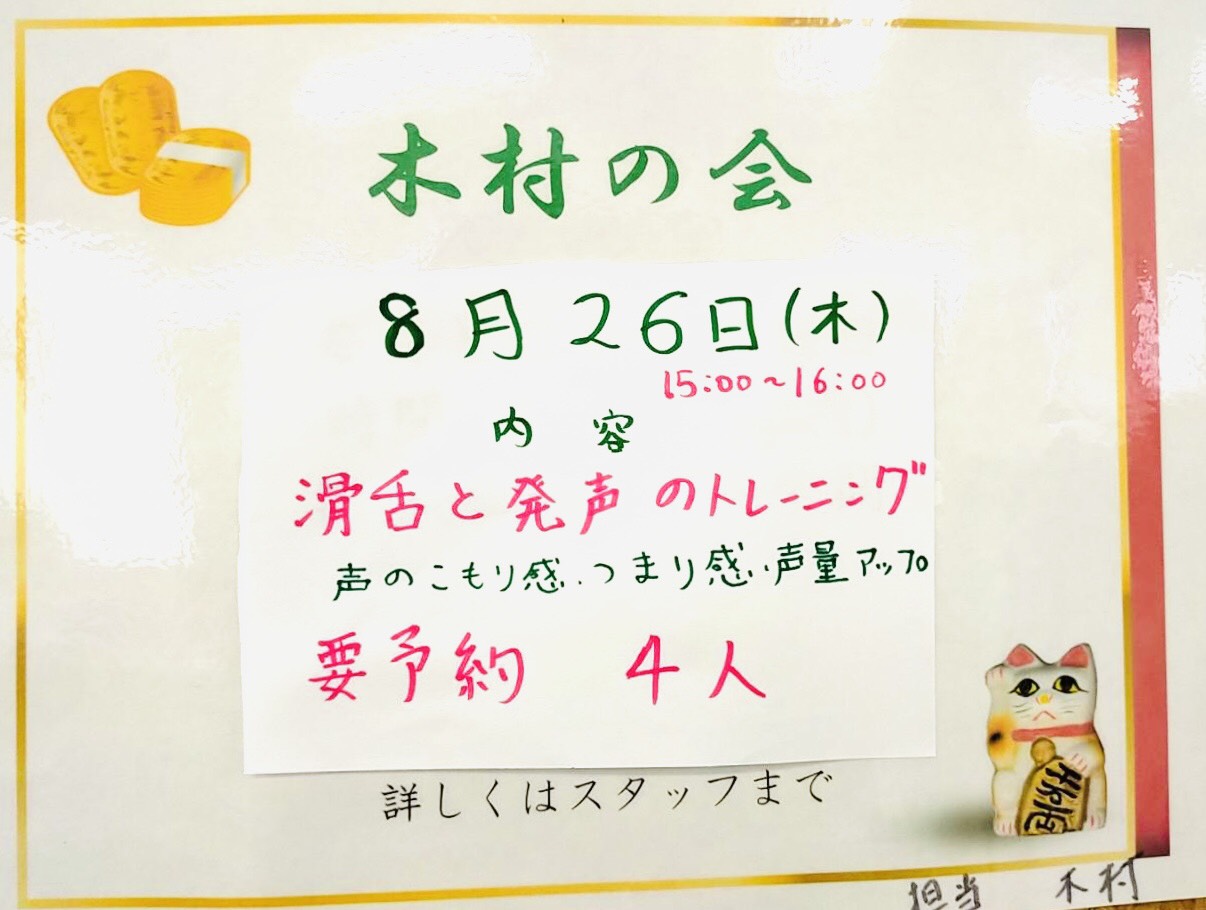 木村の会
8月26日(木)
15:00~16:00
内容
滑舌と発声のトレーニング
声のこもり感・つまり感・声量アップ
要予約 4人
詳しくはスタッフまで
担当 木村